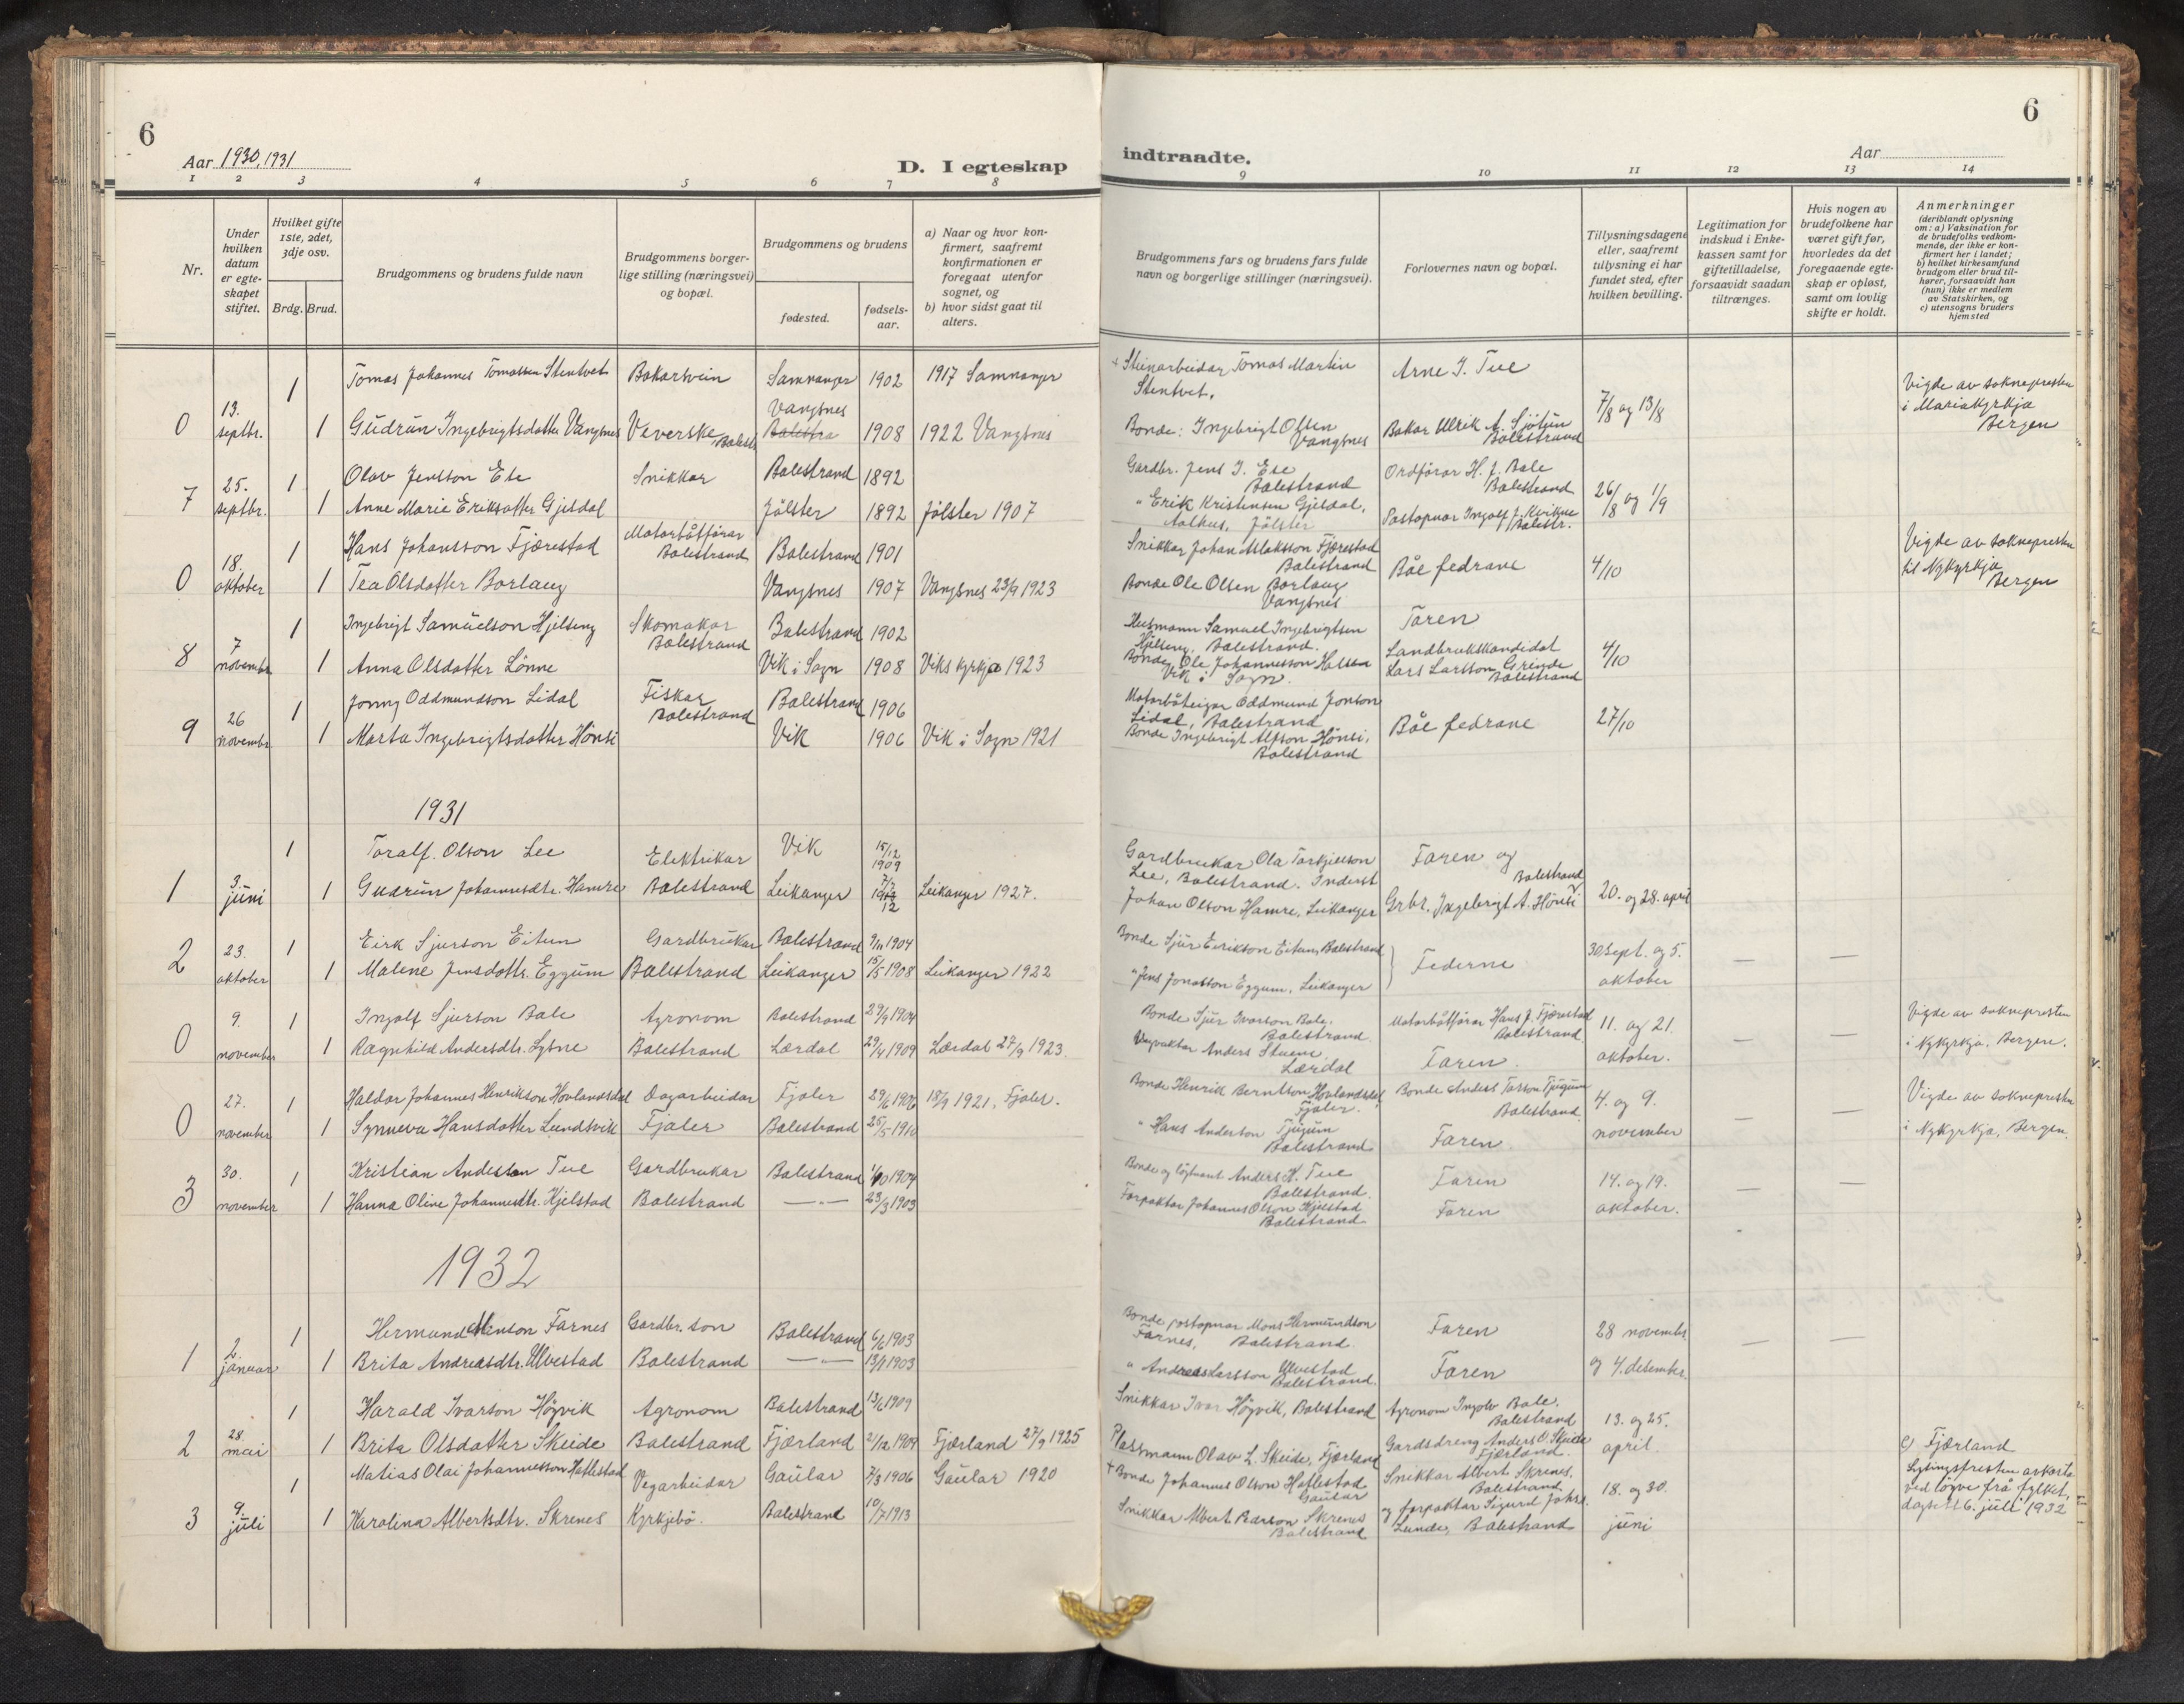 6
Aar 1930, 1931
D. I egteskap
1 2 3 4 5 6 7 8
Nr.
Under hvilken datum er egteskapet stiftet.
Hvilket gifte 1ste, 2det, 3dje osv.
Brdg. Brud.
Brudgommens og brudens fulde navn
Brudgommens borgerlige stilling (næringsvei) og bopæl.
Brudgommens og brudens
fødested.
fødselsaar.
a) Naar og hvor konfirmert, saafremt konfirmationen er foregaat utenfor sognet, og
b) hvor sidst gaat til alters.
1 Tomas Johannes Tomassen Stentvet Bakarsvein Samnanger 1902 1917 Samnanger
0 13. septbr. 1 Gudrun Ingebrigtsdotter Vangsnes Veverske Balestr. Vangsnes Balestra 1908 1922 Vangsnes
7 25. septbr. 1 Olav Jensson Ese Snikkar Balestrand 1892
1 Anne Marie Eriksdotter Gjesdal Jölster 1892 Jölster 1907
0 18. oktober 1 Hans Johansson Fjærestad Motorbåtförar Balestrand Balestrand 1901
1 Tea Olsdotter Borlaug Vangsnes 1907 Vangsnes 23/9 1923
8 7 november 1 Ingebrigt Samuelson Hjelseng Skomakar Balestrand Balestrand 1902
1 Anna Olsdotter Lönne Vik i Sogn 1908 Viks kyrkja 1923
9 26 november 1 Jonny Oddmundson Lidal Fiskar Balestrand Balestrand 1906
1 Marta Ingebrigtsdotter Hönsi Vik 1906 Vik i Sogn 1921
1931
1 3. juni 1 Toralf Olson Lee Elektrikar Vik 15/12 1909
1 Gudrun Johannesdtr. Hamre Balestrand Leikanger 7/7 1912 Leikanger 1927.
2 23. oktober 1 Eirk Sjurson Eitun Gardbrukar Balestrand 9/11 1904
1 Malene Jensdottr. Eggum Balestrand Leikanger 15/5 1908 Leikanger 1922
0 9. november 1 Ingolf Sjurson Bale Agronom Balestrand 29/9 1904
1 Ragnhild Andersdtr. Lysne Balestrand Lærdal 29/4 1909 Lærdal 27/9 1923.
0 27. november 1 Haldor Johannes Henrikson Hovlandsdal Dagarbeidar Fjaler 29/6 1906 18/9 1921, Fjaler.
1 Synneva Hansdotter Lundsvik Fjaler Balestrand 25/5 1910
3 30. november 1 Kristian Anderson Tue Gardbrukar Balestrand 1/10 1904
1 Hanna Oline Johannesdtr. Kjelstad Balestrand —"— 23/3 1903
1932
1 2. januar 1 Hermund Monson Farnes Gardbr. son Balestrand 6/6 1903
1 Brita Andreasdtr. Ulvestad Balestrand —"— 13/1 1903
2 28. mai 1 Harald Ivarson Högvik Agronom Balestrand 13/6 1909
1 Brita Olsdatter Skeide Balestrand Fjærland 2/12 1909 Fjærland 27/9 1925
3 9. juli 1 Matias Olai Johannesson Hatlestad Vegarbeidar Gaular 7/3 1906 Gaular 1920
1 Karolina Albertsdtr. Skrenes Kyrkjebö. Balestrand 10/7 1913
6
indtraadte.
Aar
9 10 11 12 13 14
Brudgommens fars og brudens fars fulde navn og borgerlige stillinger (næringsvei).
Forlovernes navn og bopæl.
Tillysningsdagene eller, saafremt tillysning ei har fundet sted, efter hvilken bevilling.
Legitimation for indskud i Enkekassen samt for giftetilladelse, forsaavidt saadan tiltrænges.
Hvis nogen av brudefolkene har været gift før, hvorledes da det foregaaende egteskap er opløst, samt om lovlig skifte er holdt.
Anmerkninger
(deriblandt oplysning om: a) Vaksination for de brudefolks vedkommende, der ikke er konfirmert her i landet; b) hvilket kirkesamfund brudgom eller brud tilhører, forsaavidt han (hun) ikke er medlem av Statskirken, og c) utensogns bruders hjemsted
Steinarbeidar Tomas Martin Stentvet. Arne J. Tue 7/8 og 13/8 Vigde av soknepresten i Mariakyrkja Bergen
Bonde: Ingebrigt Olsen Vangsnes Bakar Ulrik A. Sjötun Balestrand
Gardbr. Jens J. Ese Balestrand Ordförar H. J. Bale Balestrand 26/8 og 1/9
" Erik Kristensen Gjesdal, Aalhus, Jölster Postopnar Ingolf J. Kvikne Balestr.
Snikkar Johan Aslaksson Fjærestad Balestrand Båe fedrane 4/10 Vigde av soknepresten til Nykyrkja Bergen
Bonde Ole Olsen Borlaug Vangsnes
Husmann Samuel Ingebrigtsen Hjelseng, Balestrand. Faren 4/10
Bonde Ole Johannesson Hatsen Vik i Sogn. Landbrukskandidat Lars Larsson Grinde Balestrand
Motorbåteigar Oddmund Jonson Lidal, Balestrand Båe fedrane 27/10
Bonde Ingebrigt Alfson Hönsi, Balestrand
Gardbrukar Ola Torkjellson Lee, Balestrand. Inderst Faren og 20. og 28. april
Johan Olson Hamre, Leikanger Grbr. Ingebrigt A. Hönsi Balestrand
Bonde Sjur Eirikson Eitun, Balestrand Federne 30 sept. og 5. oktober — —
" Jens Jonasson Eggum, Leikanger
Bonde Sjur Ivarson Bale. Balestrand Motorbåtförar Hans J. Fjærestad Balestrand 11. og 21. oktober. — — Vigde av soknepresten i Nykyrkja, Bergen.
Vegvaktar Anders Lærdal Faren.
Bonde Henrik Berntson Hovlandsdal Fjaler. Bonde Anders Tjugum Balestrand 4. og 9. november — — Vigde av soknepresten i Nykyrkja, Bergen.
" Hans Anderson Tjugum Balestrand Faren
Bonde og löytnant Anders K. Tue Balestrand. Faren 14. og 19. oktober. — —
Forpaktar Johannes Olson Kjelstad Balestrand Faren
Bonde postopnar Mons Hermundson Farnes, Balestrand. Faren 28 novembr. og 4. desember. — —
" Andreas Larsson Ulvestad Balestrand. Faren
Snikkar Ivar Högvik, Balestrand Agronom Ingolv Bale. Balestrand 13. og 25. april.
Plassmann Olav L. Skeide, Fjærland Gardsdreng Anders O. Skeide Fjærland. c) Fjærland
+ Bonde Johannes Olson Hatlestad Gaular Snikkar Albert Skrenes. Balestrand 18. og 30. juni Lysingsfresten avkorta ved löyve frå fylket, dagsett 6. juli 1932
Snikkar Albert Skrenes Balestrand og forpaktar Sigurd Johs. Lunde, Balestrand